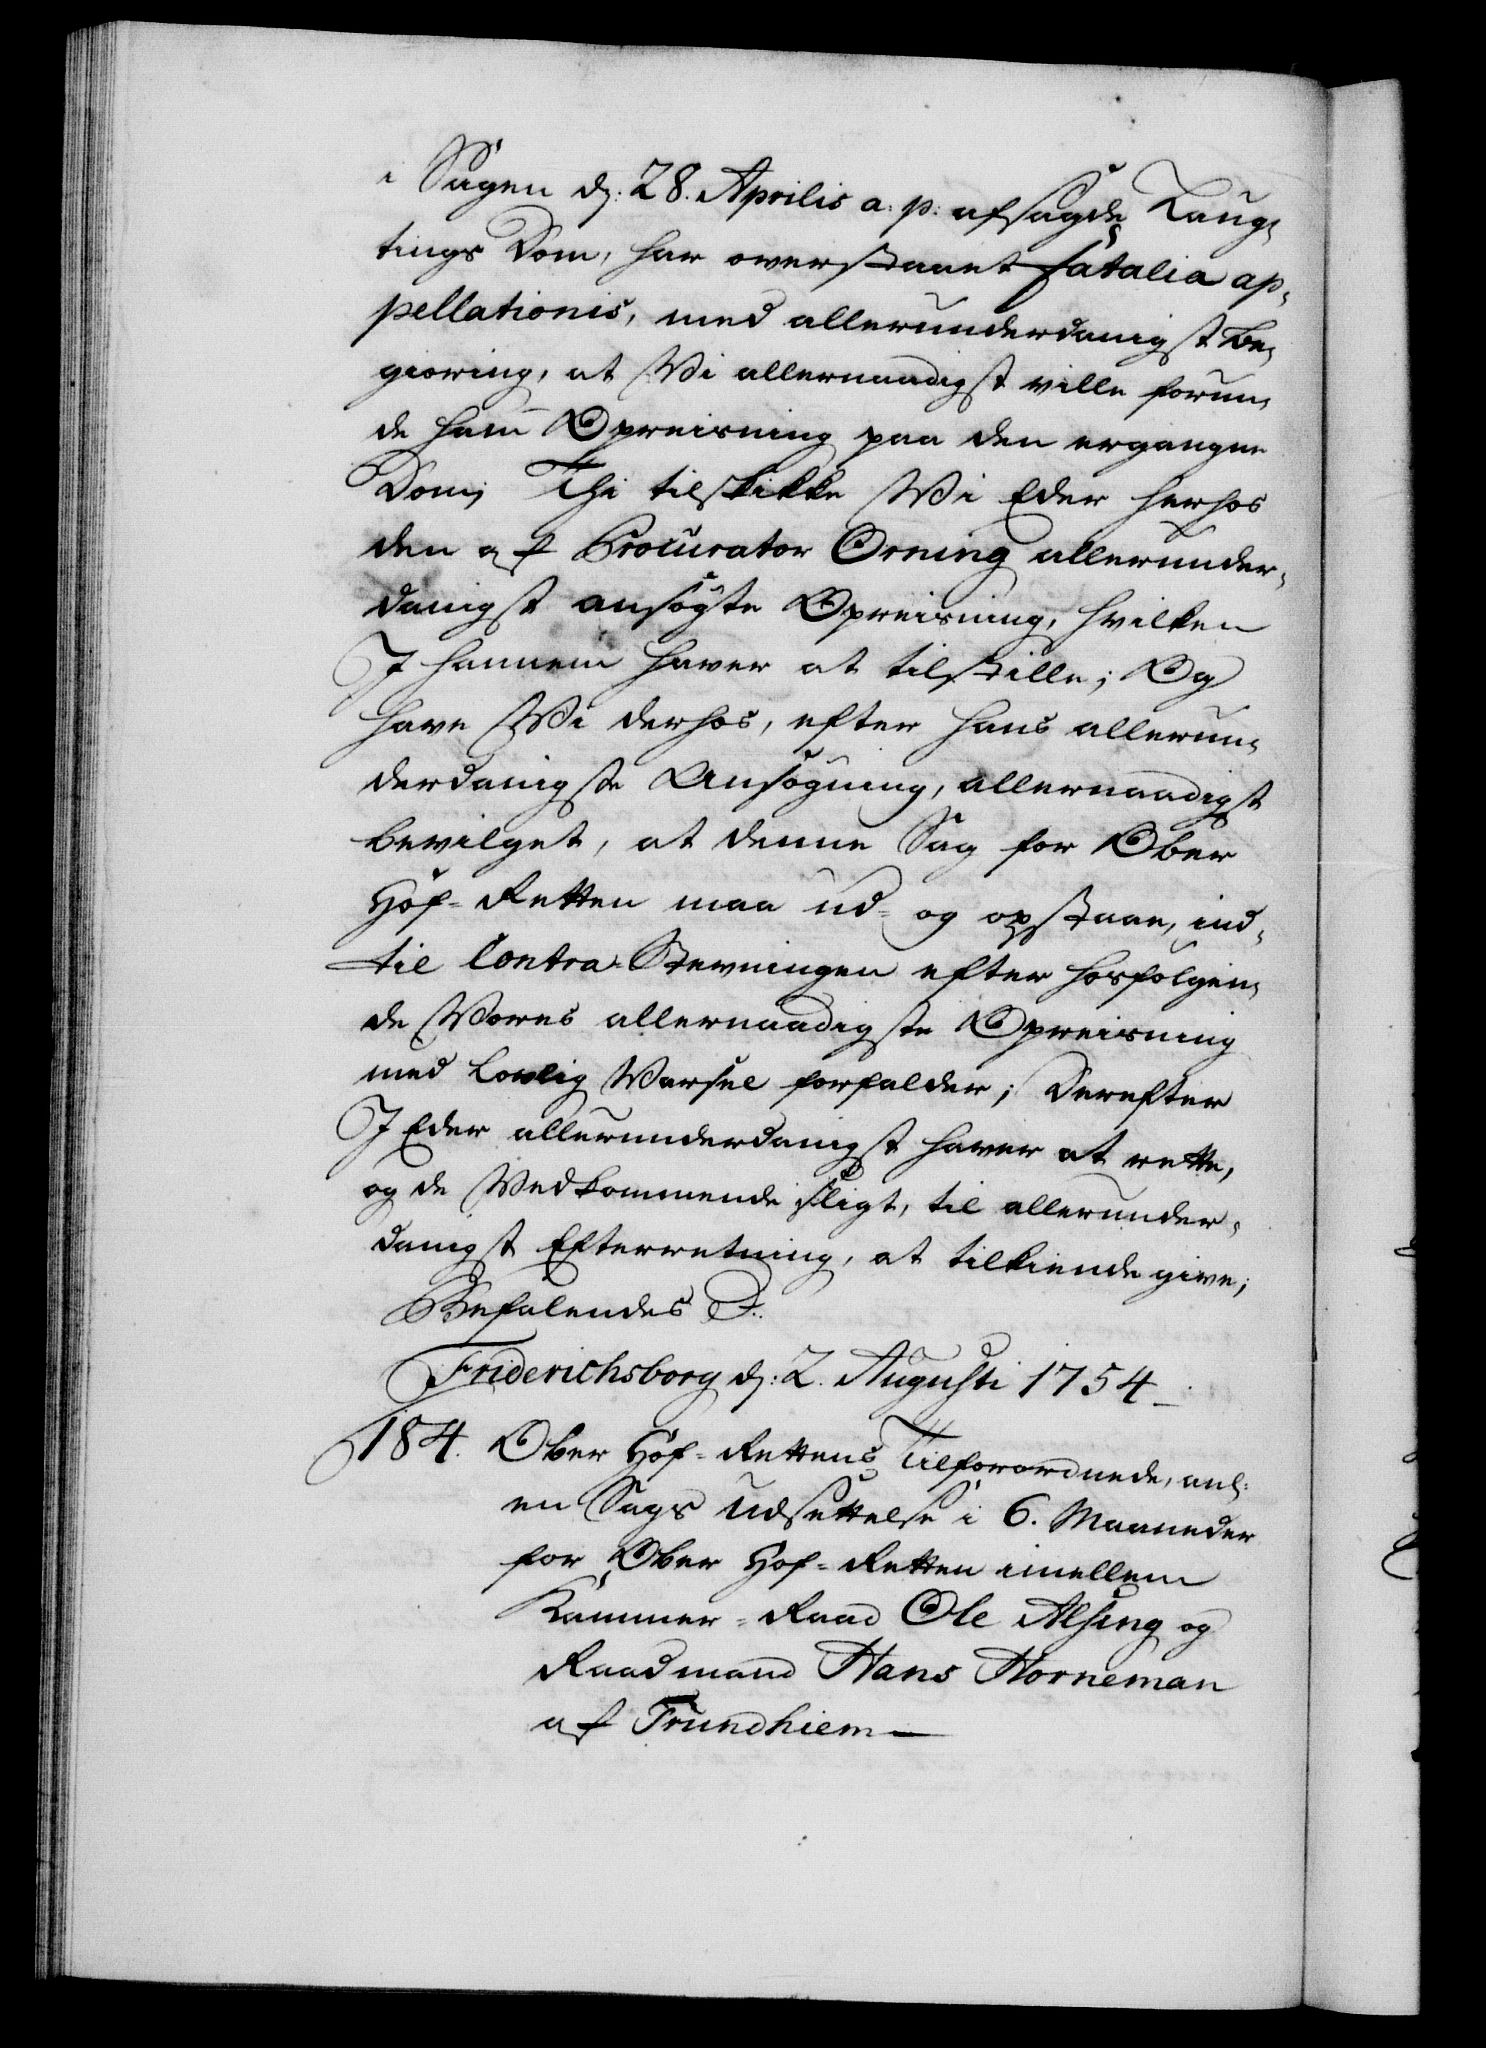 i Sagen d: 28. Aprilis a: p: afsagde Laug-
tings Dom, har overstaaet fatalia ap-
pellationis, med allerunderdanigst Be-
giering, at Vi allernaadigst ville forun-
de ham Opreisning paa den ergangne
Dom; Thi tilskikke Vi Eder herhos
den af Procurator Orning allerunder-
danigst ansøgte Opreisning, hvilken
I hannem haver at tilstille; Og
have Vi derhos, efter hans allerun-
derdanigste Ansøgning, allernaadigst
bevilget, at denne Sag for Ober
Hof-Retten maa ud- og opstaae, ind-
til Contra-Stevningen efter hosfølgen-
de Vores allernaadigste Opreisning
med Lovlig Varsel forfalder; Derefter
I Eder allerunderdanigst haver at rette,
og de Vedkommende sligt, til allerunder-
danigst Efterretning, at tilkiende give;
Befalendes &.
Friderichsborg d: 2. Augusti 1754
184. Ober Hof-Rettens Tilforordnede, anl:
en Sags Udsettelse i 6. Maaneder
for Ober Hof-Retten imellem
Kammer-Raad Ole Alsing og
Raadmand Hans Horneman
af Trundhiem